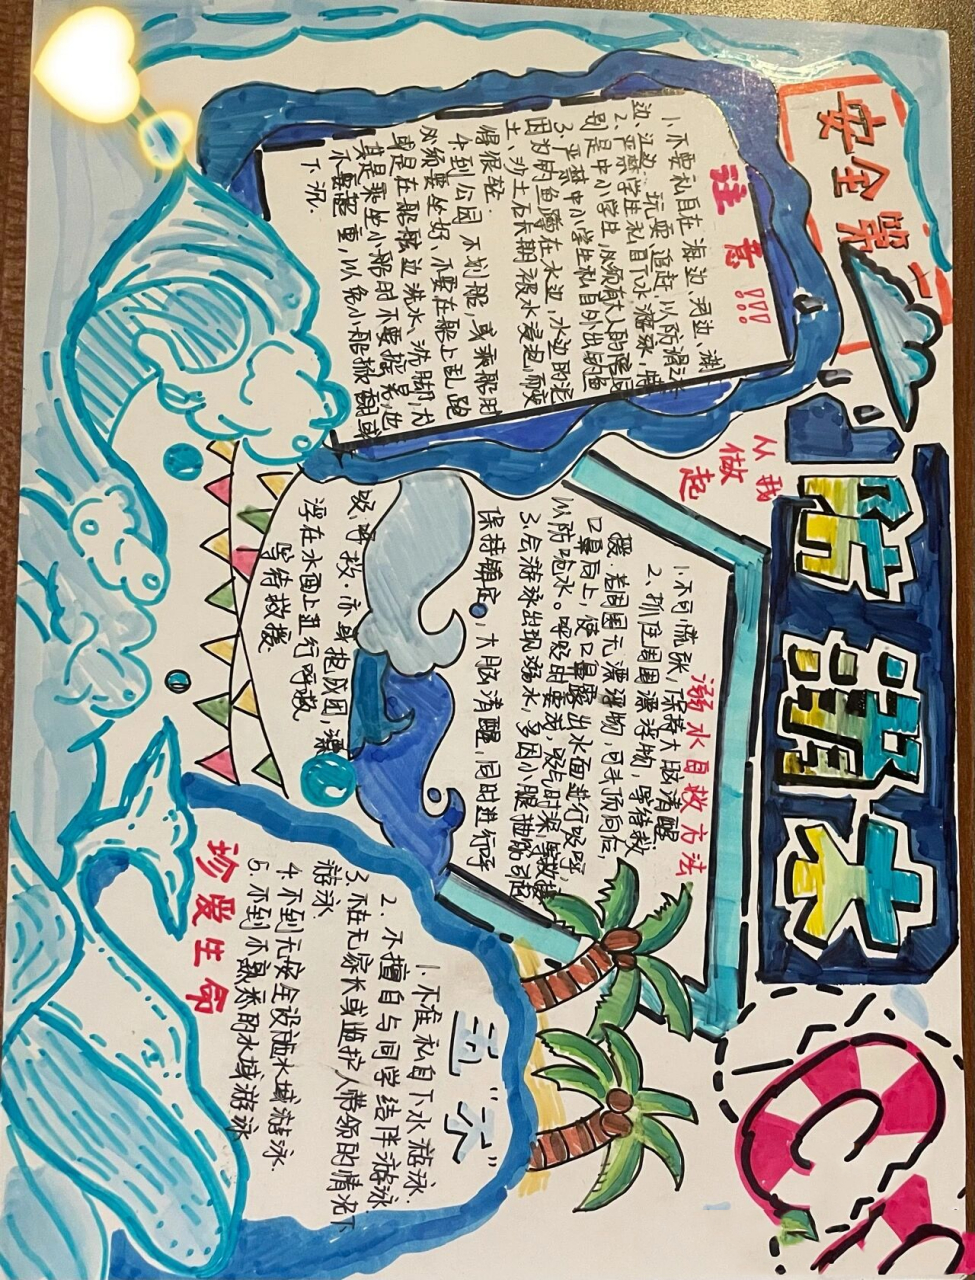 安全第一
防溺水
从我
做
起
注意!!!
1.不要私自在海边、河边、湖
边、江边、玩耍、追赶,以防滑入水
2.严禁学生私自下水游泳,特
别是中小学生,必须有大人的陪同
3.严禁中小学生私自外出钓鱼
因为钓鱼蹲在水边,水边的泥
土、沙土石长期被水浸泡,而变
得很轻.
4.到公园,不划船,或乘船时
必须要坐好,不要在船上乱跑
或是在船舷边洗水、洗脚,尤
其是乘坐小船时不要摇晃,也
不要超重,以免小船掀翻或
下沉.
溺水自救方法
1.不可慌张,保持大脑清醒
2.抓住周围漂浮物,等待救
援.若周围无漂浮物,可手顶向后,
口鼻向上,使口鼻露出水面进行吸呼,
以防呛水。呼吸时要浅,吸气时深,等救援
3.会游泳出现溺水,多因小腿抽筋引起
保持镇定,大脑清醒,同时进行呼
吸,呼救.亦或抱成团,漂
浮在水面上进行呼救
等待救援
五“不”
1.不准私自下水游泳.
2.不擅自与同学结伴游泳
3.不在无家长或监护人带领的情况下
游泳
4.不到无安全设施水域游泳.
5.不到不熟悉的水域游泳
珍爱生命